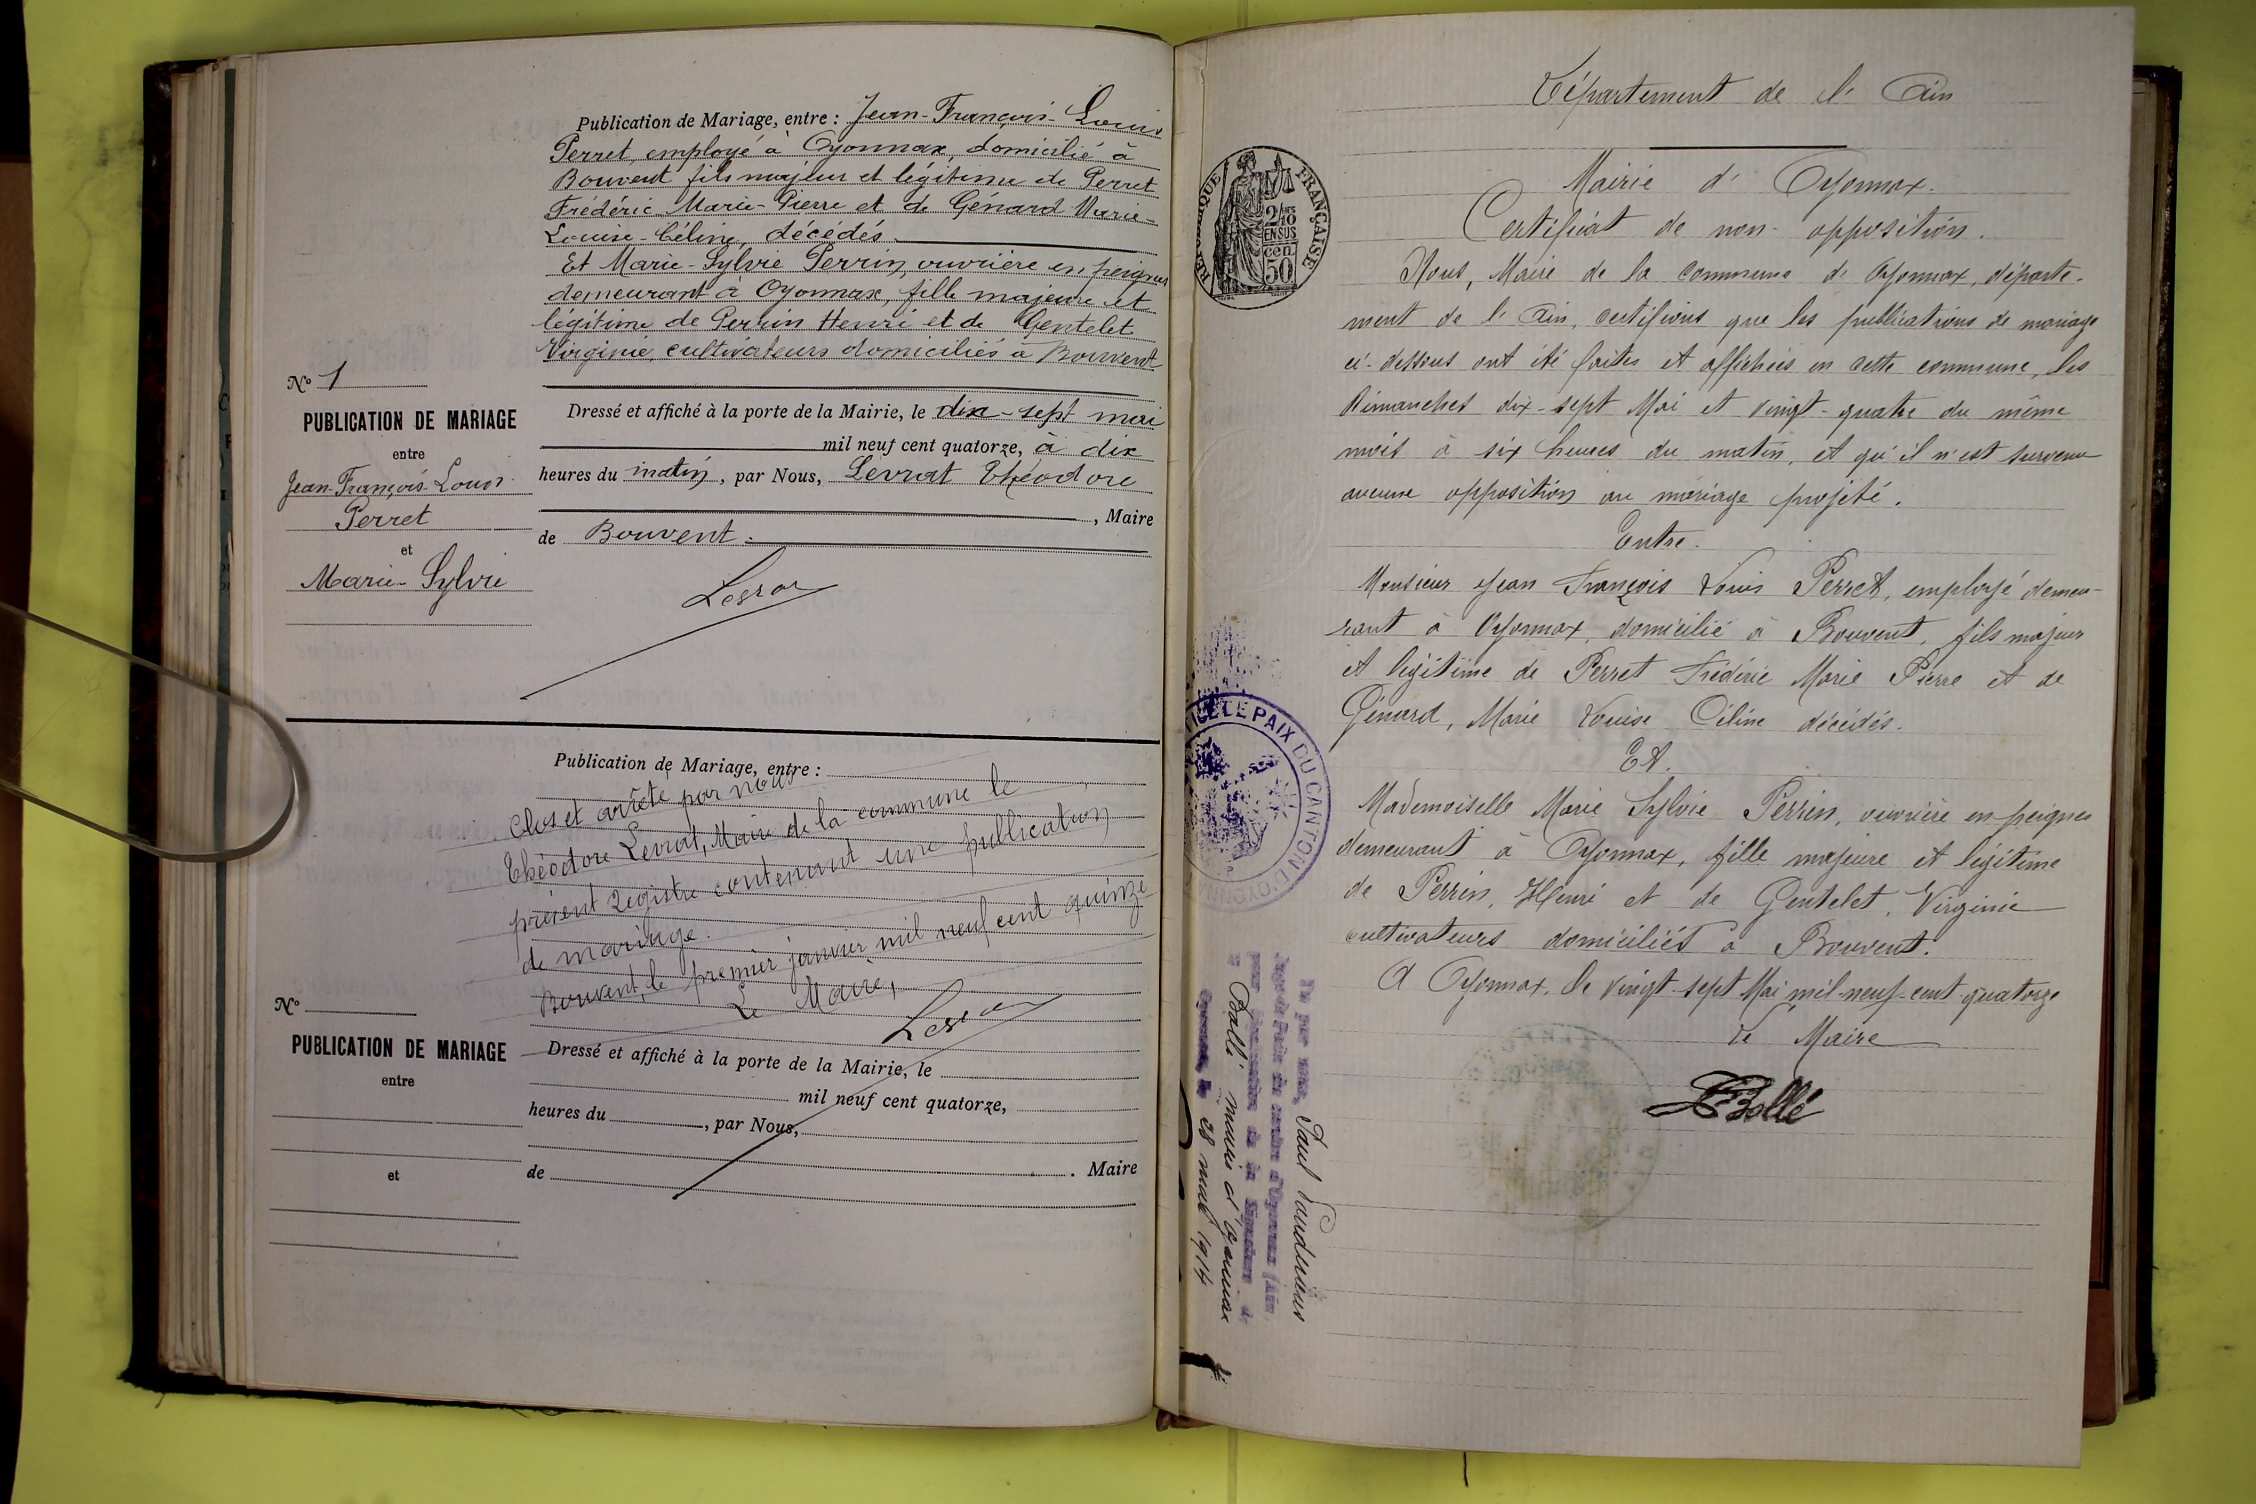 Publication de Mariage, entre : Jean-François-Louis
Perret, employé à Oyonnax, domicilié à
Bouvent fils majeur et légitime de Perret
Frédéric Marie-Pierre et de Génard Marie-
Louise-Céline, décédés.
Et Marie-Sylvie Perrin, ouvrière en peignes
demeurant à Oyonnax, fille majeure et
légitime de Perrin Henri et de Gentelet
Virginie, cultivateurs domiciliés à Bouvent
N° 1
PUBLICATION DE MARIAGE
entre
Jean-François-Louis
Perret
et
Marie-Sylvie
Dressé et affiché à la porte de la Mairie, le dix-sept mai
mil neuf cent quatorze, à dix
heures du matin, par Nous, Levrat Théodore
, Maire
de Bouvent.
Levrat
Publication de Mariage, entre :
Clos et arrêté par nous
Théodore Levrat, Maire de la commune le
présent Registre contenant une publication
de mariage.
Bouvent, le premier janvier mil neuf cent quinze
Le Maire,
Levrat
N°
PUBLICATION DE MARIAGE
entre
et
Dressé et affiché à la porte de la Mairie, le
mil neuf cent quatorze,
heures du , par Nous,
. Maire
de
Département de l' Ain
Mairie d' Oyonnax.
Certificat de non-opposition.
Nous, Maire de la commune d' Oyonnax, départe-
ment de l' Ain, certifions que les publications de mariage
ci-dessous ont été faites et affichées en cette commune, les
Dimanches dix-sept Mai et vingt-quatre du même
mois à six heures du matin, et qu'il n'est survenu
aucune opposition au mariage projeté.
Entre.
Monsieur Jean François Louis Perret, employé demeu-
rant à Oyonnax, domicilié à Bouvent, fils majeur
et légitime de Perret Frédéric Marie Pierre et de
Génard, Marie Louise Céline décédés.
Et.
Mademoiselle Marie Sylvie Perrin, ouvrière en peignes
demeurant à Oyonnax, fille majeure et légitime
de Perrin, Henri et de Gentelet, Virginie
cultivateurs domiciliés à Bouvent.
A Oyonnax, le vingt-sept Mai mil-neuf-cent-quatorze
Le Maire
Bollé
RÉPUBLIQUE FRANÇAISE
2/10
EN SUS
50 cen.
DE PAIX DU CANTON D'OYONNAX
Vu par nous, Paul
Juge de Paix du canton d'Oyonnax (Ain
pour légalisation de la signature de
M Bollé maire d'Oyonnax
Oyonnax, le 28 mai 1914